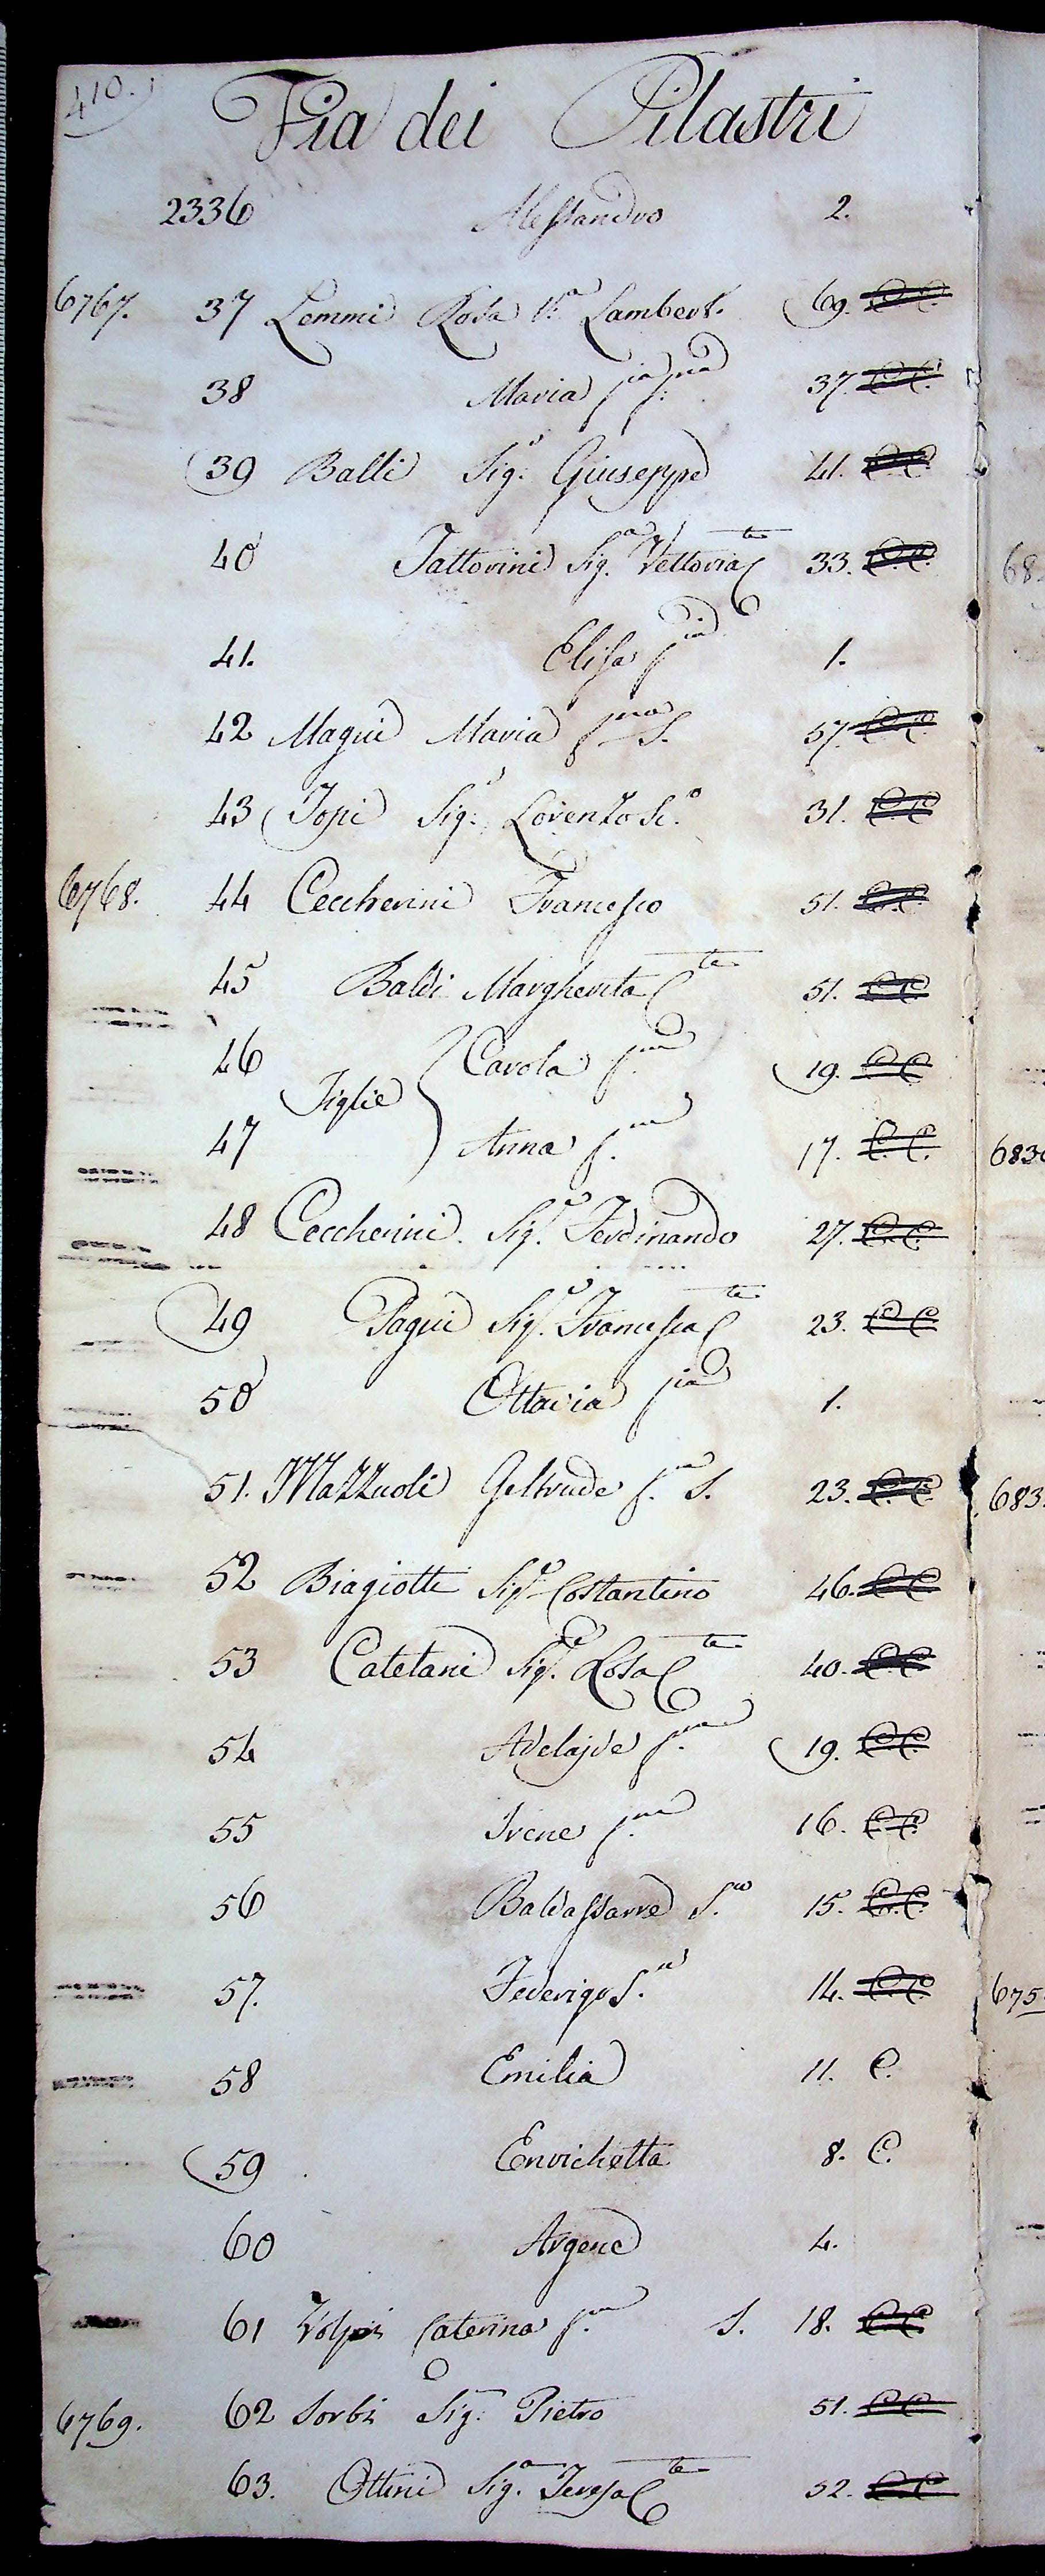 410.
Via dei Pilastri
2336 Alessandro 2.
6767. 37 Lemmi Rosa Va Lambert. 69. C.C.
38 Maria 37. C.C.
39 Balli Sig. Giuseppe 41. C.C.
40 Fattorini Sig.a Vettoria Cta 33. C.C.
41. Elisa 1.
42 Magni Maria S. 57. C.C.
43 Topi Sig. Lorenzo So. 31. C.C.
6768. 44 Ceccherini Francesco 51. C.C.
45 Baldi Margherita Cta 51. C.C.
46 Carola 19. C.C.
Figlie
47 Anna 17. C.C.
48 Ceccherini Sig. Ferdinando 27. C.C.
49 Pagni Sig. Francesca Cta 23. C.C.
50 Ottavia 1.
51. Mazzuoli Geltrude S. 23. C.C.
52 Biagiotti Sig. Costantino 46. C.C.
53 Catelani Sig. Rosa Cta 40. C.C.
54 Adelajde 19. C.C.
55 Irene 16. C.C.
56 Baldassarre S. 15. C.C.
57. Federigo S. 14. C.C.
58 Emilia 11. C.
59 Enrichetta 8. C.
60 Argene 4.
61 Volpi Caterina S. 18. C.C.
6769. 62 Sorbi Sig. Pietro 51. C.C.
63. Ottini Sig.a Teresa Cta 52. C.C.